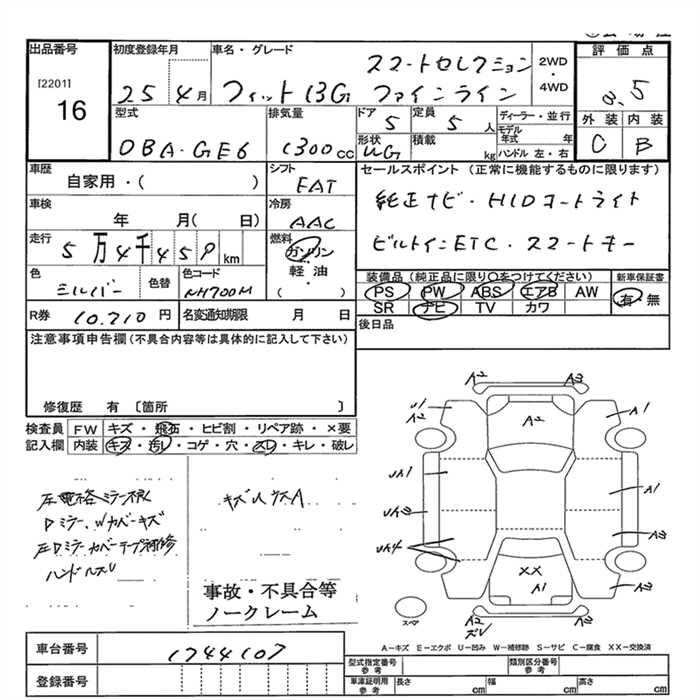 出品番号
[2201]
16
初度登録年月
25 4月
車名・グレード
スマートセレクション
フィット 13G ファインライン
2WD
・
4WD
評価点
3.5
型式
DBA-GE6
排気量
1300cc
ドア
5
定員
5人
ディーラー・並行
モデル年式 年
ハンドル 左・右
形状
WG
積載
kg
外装 内装
C B
車歴
自家用・( )
シフト
FAT
車検
年 月( 日)
冷房
AAC
走行
5万4千459km
燃料
ガソリン
軽油
( )
色
シルバー
色替
色コード
NH700M
R券
10,710円
名変通知期限 月 日
セールスポイント (正常に機能するものに限ります)
純正ナビ・HIDコートライト
ビルトインETC・スマートキー
装備品 (純正品に限り○をつけてください)
新車保証書
PS PW ABS エアB AW
SR ナビ TV カワ
有・無
後日品
注意事項申告欄 (不具合内容等は具体的に記入して下さい)
修復歴 有 〔箇所 〕
検査員記入欄
FW キズ・飛石・ヒビ割・リペア跡・×要
内装 キズ・汚レ・コゲ・穴・スレ・キレ・破レ
Dミラー、Wカバーキズ
左Dミラーカバーテープ補修
ハンドルスレ
事故・不具合等
ノークレーム
A2 A3
U1
A2
A2
A1
A1
A2
A2
XX
A1
A2
スレ
A2
スペア
A－キズ E－エクボ U－凹み W－補修跡 S－サビ C－腐食 XX－交換済
車台番号
1744107
登録番号
型式指定番号 参考
類別区分番号 参考
車庫証明用 参考
長さ cm
幅 cm
高さ cm